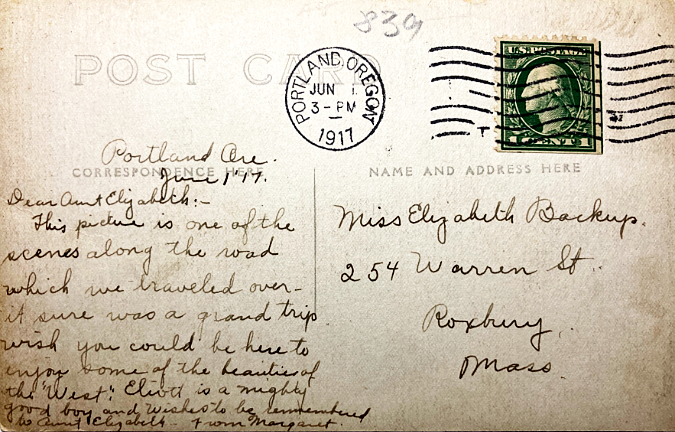 839
POST CARD
PORTLAND, OREGON
JUN 1
3-PM
1917
U.S. POSTAGE
1 CENT 1
Portland Ore.
CORRESPONDENCE HERE
June 1 '17.
Dear Aunt Elizabeth:-
This picture is one of the
scenes along the road
which we traveled over-
it sure was a grand trip
wish you could be here to
enjoy some of the beauties of
the "West". Eliott is a mighty
good boy and wishes to be remembered
to Aunt Elizabeth - From Margaret.
NAME AND ADDRESS HERE
Miss Elizabeth Backup.
254 Warren St.
Roxbury,
Mass.